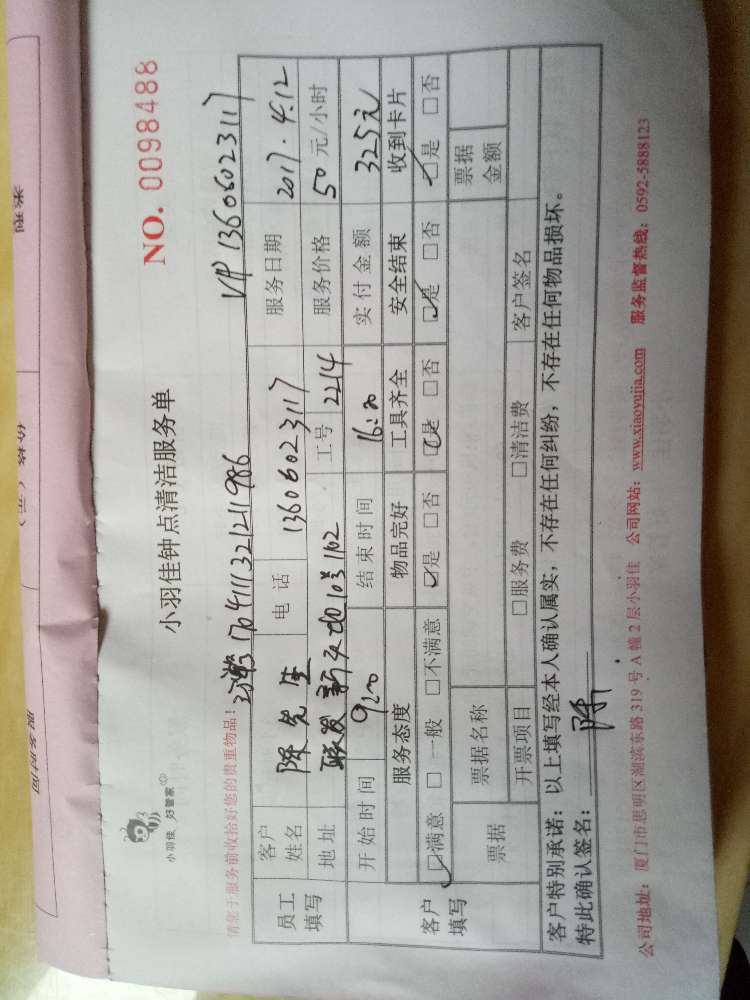 小羽佳 好管家
小羽佳钟点清洁服务单
NO. 0098488
请您于服务前收拾好您的贵重物品!
1704111321211986 VIP 13606023117
员工填写 客户姓名 陈先生 电话 13606023117 服务日期 2017.4.12
地址 联发新天地103 1102 工号 2214 服务价格 50 元/小时
客户填写 开始时间 9:00 结束时间 16:00 实付金额 325元
服务态度 物品完好 工具齐全 安全结束 收到卡片
☑满意 □一般 □不满意 ☑是 □否 ☑是 □否 ☑是 □否 ☑是 □否
票据 票据名称 票据金额
开票项目 □服务费 □清洁费 客户签名
客户特别承诺:以上填写经本人确认属实,不存在任何纠纷,不存在任何物品损坏。
特此确认签名: 陈
公司地址:厦门市思明区湖滨东路 319 号 A 幢 2 层小羽佳 公司网站:www.xiaoyujia.com 服务监督热线:0592-5888123